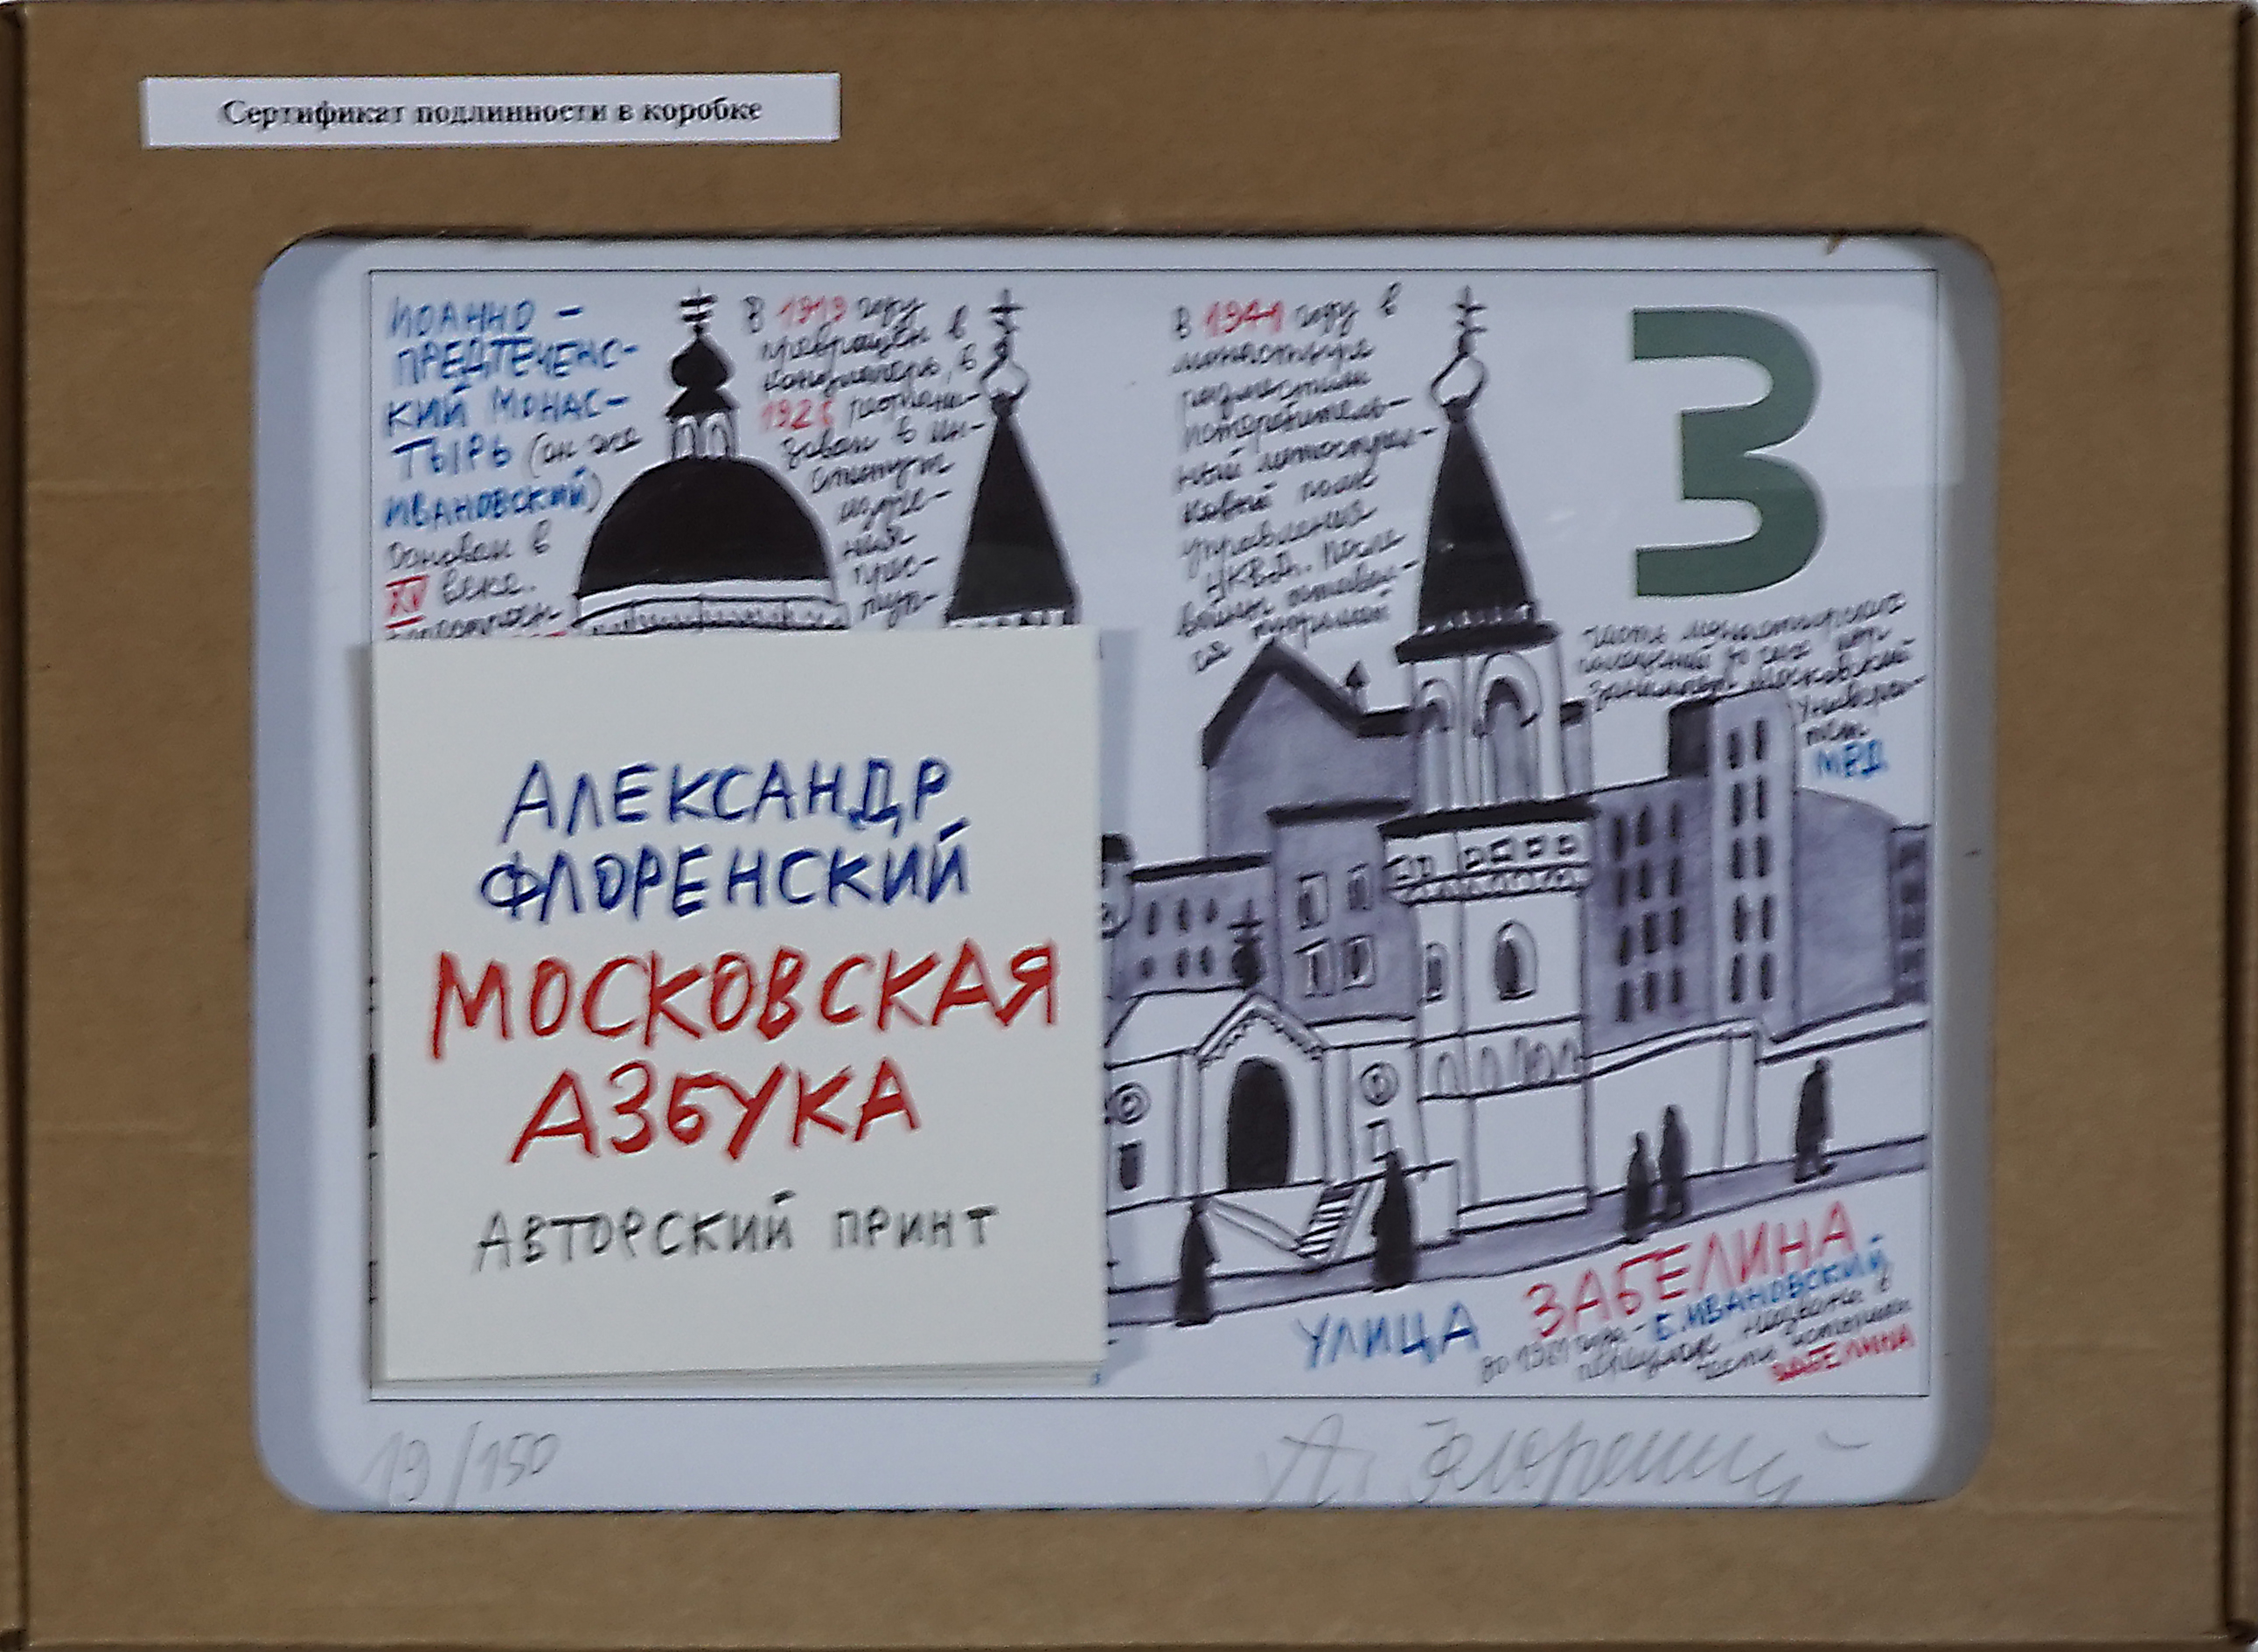 Сертификат подлинности в коробке
ИОАННО-
ПРЕДТЕЧЕНС-
КИЙ МОНАС-
ТЫРЬ (он же
ИВАНОВСКИЙ)
Основан в
XV веке.
В 1919 году
превращён в
концлагерь, в
реоргани-
зован в ин-
ститут
изуче-
ния
прес-
туп-
В 1941 году в
монастыре
разместили
истребитель-
ный мотострел-
ковый полк
управления
НКВД. После
войны оставал-
ся тюрьмой
З
часть монастырских
помещений до сих пор
занимает Московский
Универси-
тет
МВД
АЛЕКСАНДР
ФЛОРЕНСКИЙ
МОСКОВСКАЯ
АЗБУКА
АВТОРСКИЙ ПРИНТ
УЛИЦА ЗАБЕЛИНА
до 1961 года - Б. ИВАНОВСКИЙ
переулок назван в
честь историка
ЗАБЕЛИНА
19/150
А. Флоренский